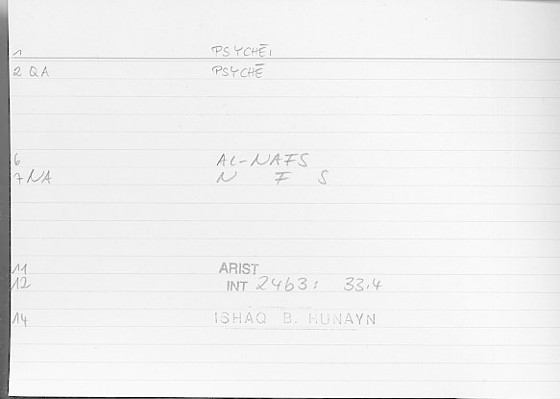 1 PSYCHĒ,
2 QA PSYCHĒ
6 AL-NAFS
7 NA N F S
11 ARIST
12 INT 2463: 33.4
14 ISHĀQ B. HUNAYN